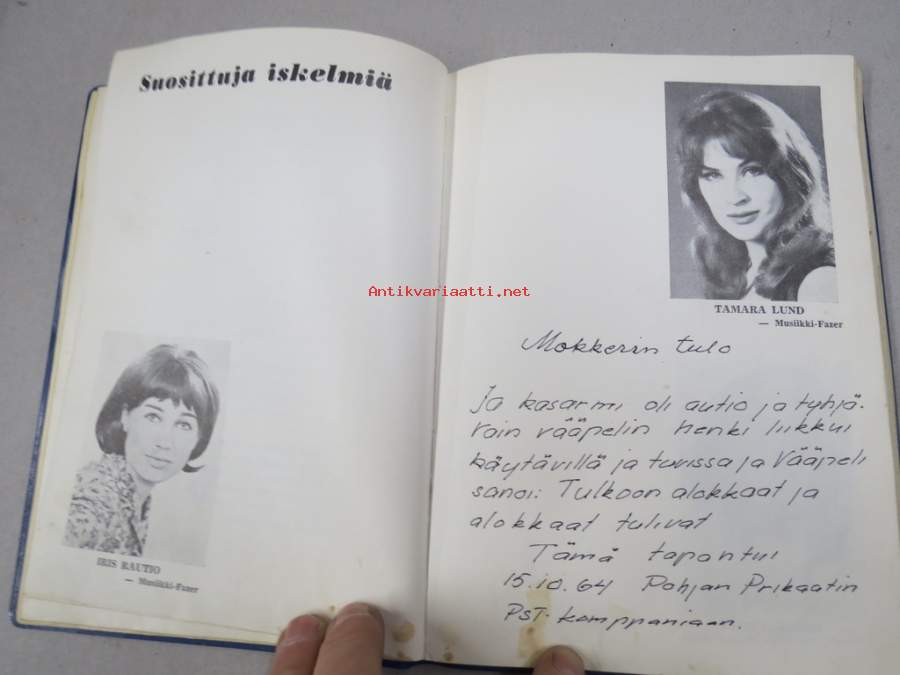 Suosittuja iskelmiä
IRIS RAUTIO
— Musiikki-Fazer
Antikvariaatti.net
TAMARA LUND
— Musiikki-Fazer
Mokkerin tulo
Ja kasarmi oli autio ja tyhjä.
Vain vääpelin henki liikkui
käytävillä ja tuvissa ja Vääpeli
sanoi: Tulkoon alokkaat ja
alokkaat tulivat
Tämä tapahtui
15.10.64 Pohjan Prikaatin
PST-komppaniaan.